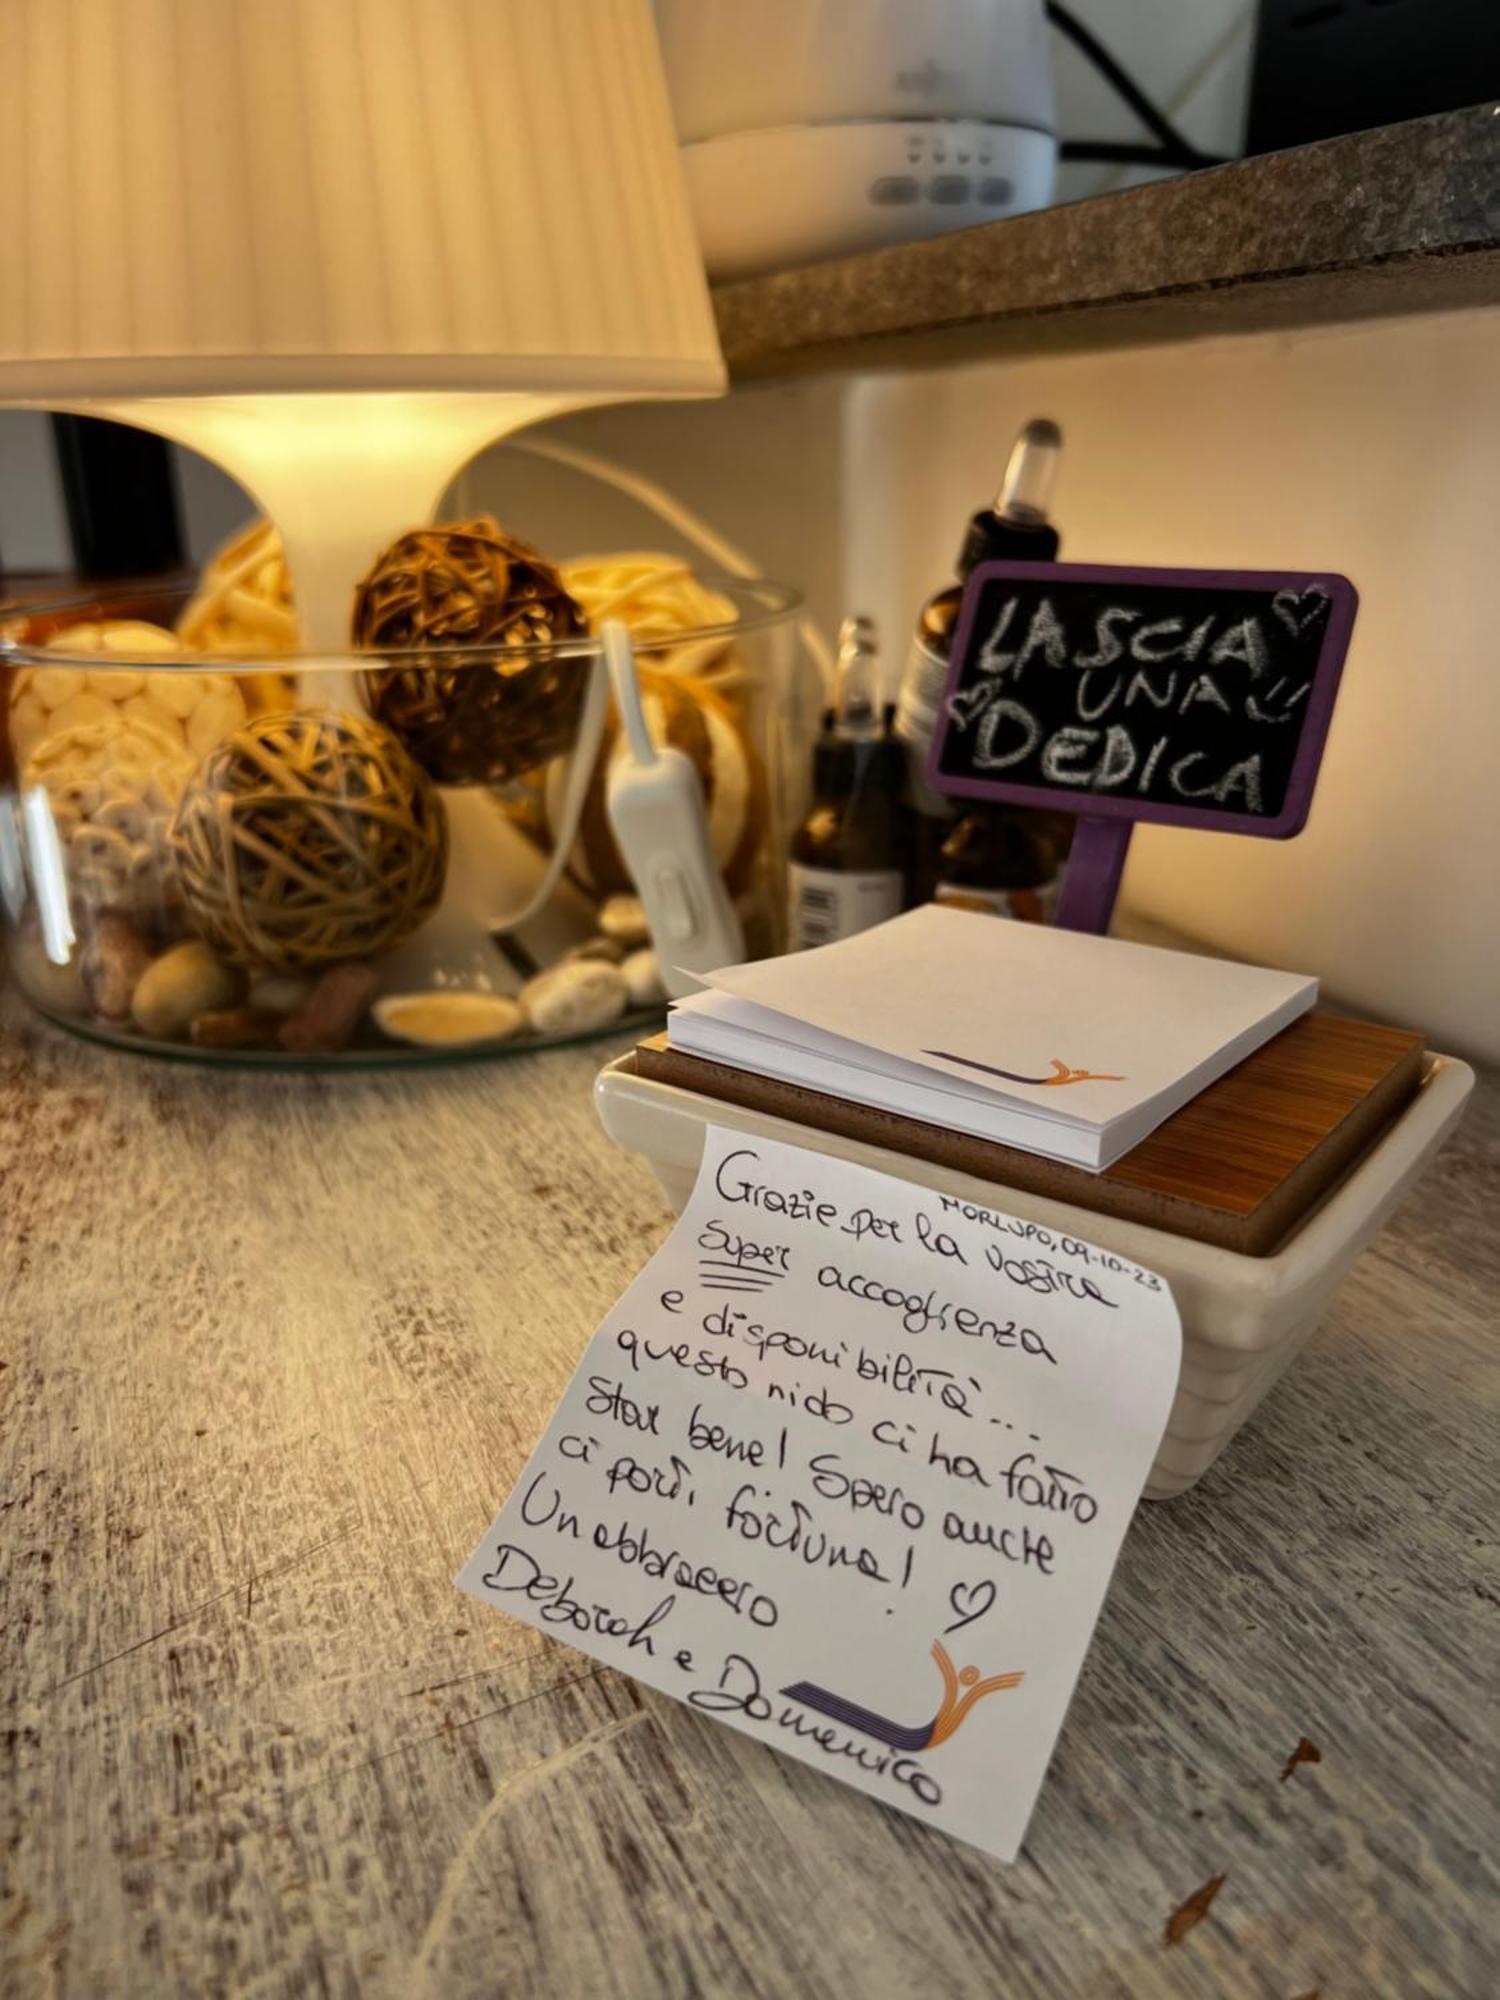 LASCIA
UNA
DEDICA
MORLUPO, 09-10-23
Grazie per la vostra
Super accoglienza
e disponibilità...
questo nido ci ha fatto
star bene! Spero anche
ci porti fortuna!
Un abbraccio
Deborah e Domenico